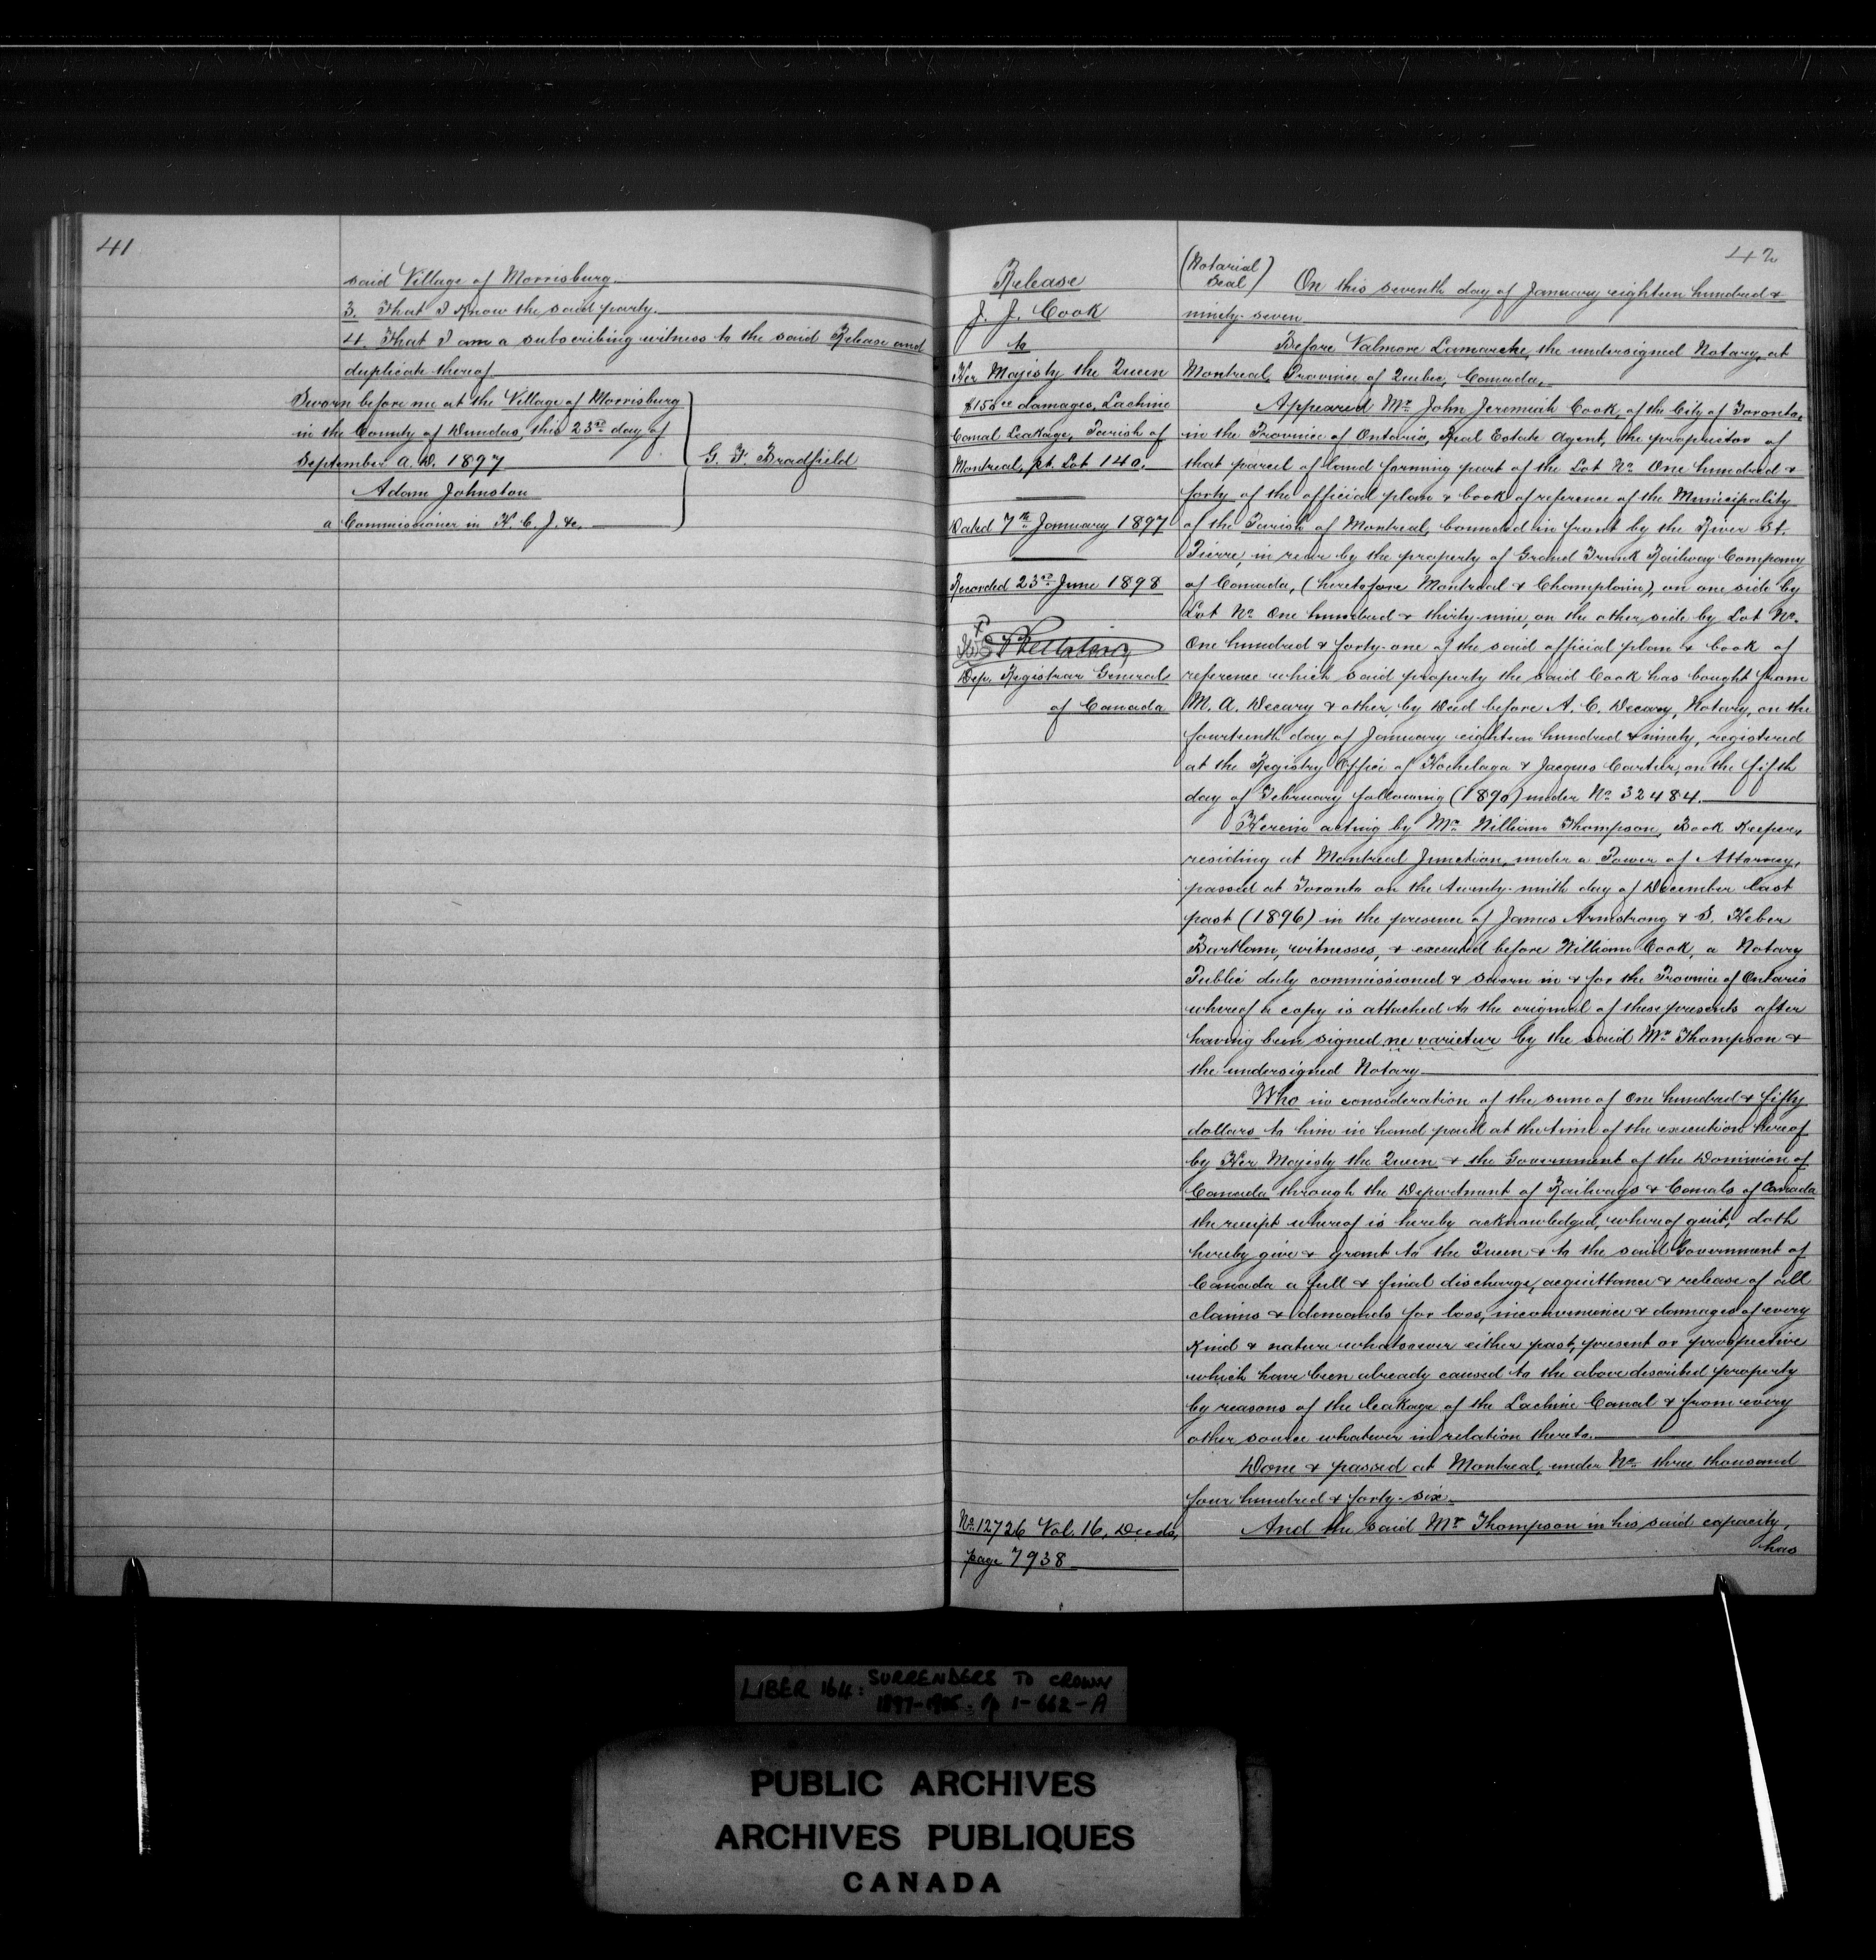 41
said Village of Morrisburg.
3. That I Know the said party.
4. That I am a subscribing witness to the said Release and
duplicate thereof.
Sworn before me at the Village of Morrisburg
in the County of Dundas, this 23rd day of
September A. D. 1897
G. F. Bradfield
Adam Johnston
a Commissioner in H. C. J. &c.
42
Release
J. J. Cook
to
Her Majesty the Queen
$150.00 damages, Lachine
Canal Leakage, Parish of
Montreal, pt. Lot 140.
Dated 7th January 1897
Recorded 23rd June 1898
Dep. Registrar General
of Canada
No. 12726 Vol. 16, Deeds,
page 7938
(Notarial
Seal)
On this seventh day of January eighteen hundred &
ninety-seven
Before Valmore Lamarche, the undersigned Notary, at
Montreal, Province of Quebec, Canada,
Appeared Mr. John Jeremiah Cook, of the City of Toronto,
in the Province of Ontario, Real Estate Agent, the proprietor of
that parcel of land forming part of the Lot No. One hundred &
forty of the official plan & book of reference of the Municipality
of the Parish of Montreal, bounded in front by the River St.
Pierre, in rear by the property of Grand Trunk Railway Company
of Canada, (heretofore Montreal & Champlain), on one side by
Lot No. One hundred & thirty-nine, on the other side by Lot No.
One hundred & forty-one of the said official plan & book of
reference which said property the said Cook has bought from
M. A. Decary & other by Deed before A. C. Decary, Notary, on the
fourteenth day of January eighteen hundred & ninety, registered
at the Registry Office of Hochelaga & Jacques Cartier, on the fifth
day of February following (1890) under No. 32484.
Herein acting by Mr. William Thompson, Book Keeper,
residing at Montreal Junction, under a Power of Attorney,
passed at Toronto on the twenty-ninth day of December last
past (1896) in the presence of James Armstrong & S. Heber
witnesses, & executed before William Cook, a Notary
Public duly commissioned & sworn in & for the Province of Ontario
whereof a copy is attached to the original of these presents after
having been signed ne varietur by the said Mr. Thompson &
the undersigned Notary
Who in consideration of the sum of One hundred & fifty
dollars to him in hand paid at the time of the execution hereof
by Her Majesty the Queen & the Government of the Dominion of
Canada through the Department of Railways & Canals of Canada
the receipt whereof is hereby acknowledged, whereof quit, doth
hereby give & grant to the Queen & to the said Government of
Canada a full & final discharge, acquittance & release of all
claims & demands for loss, inconvenience & damages of every
Kind & nature whatsoever either past, present or prospective
which have been already caused to the above described property
by reasons of the leakage of the Lachine Canal & from every
other source whatever in relation thereto.
Done & passed at Montreal, under No. three thousand
four hundred & forty-six.
And the said Mr. Thompson in his said capacity,
has
LIBER 164: SURRENDERS TO CROWN
1897-1905. p 1-662-A
PUBLIC ARCHIVES
ARCHIVES PUBLIQUES
CANADA